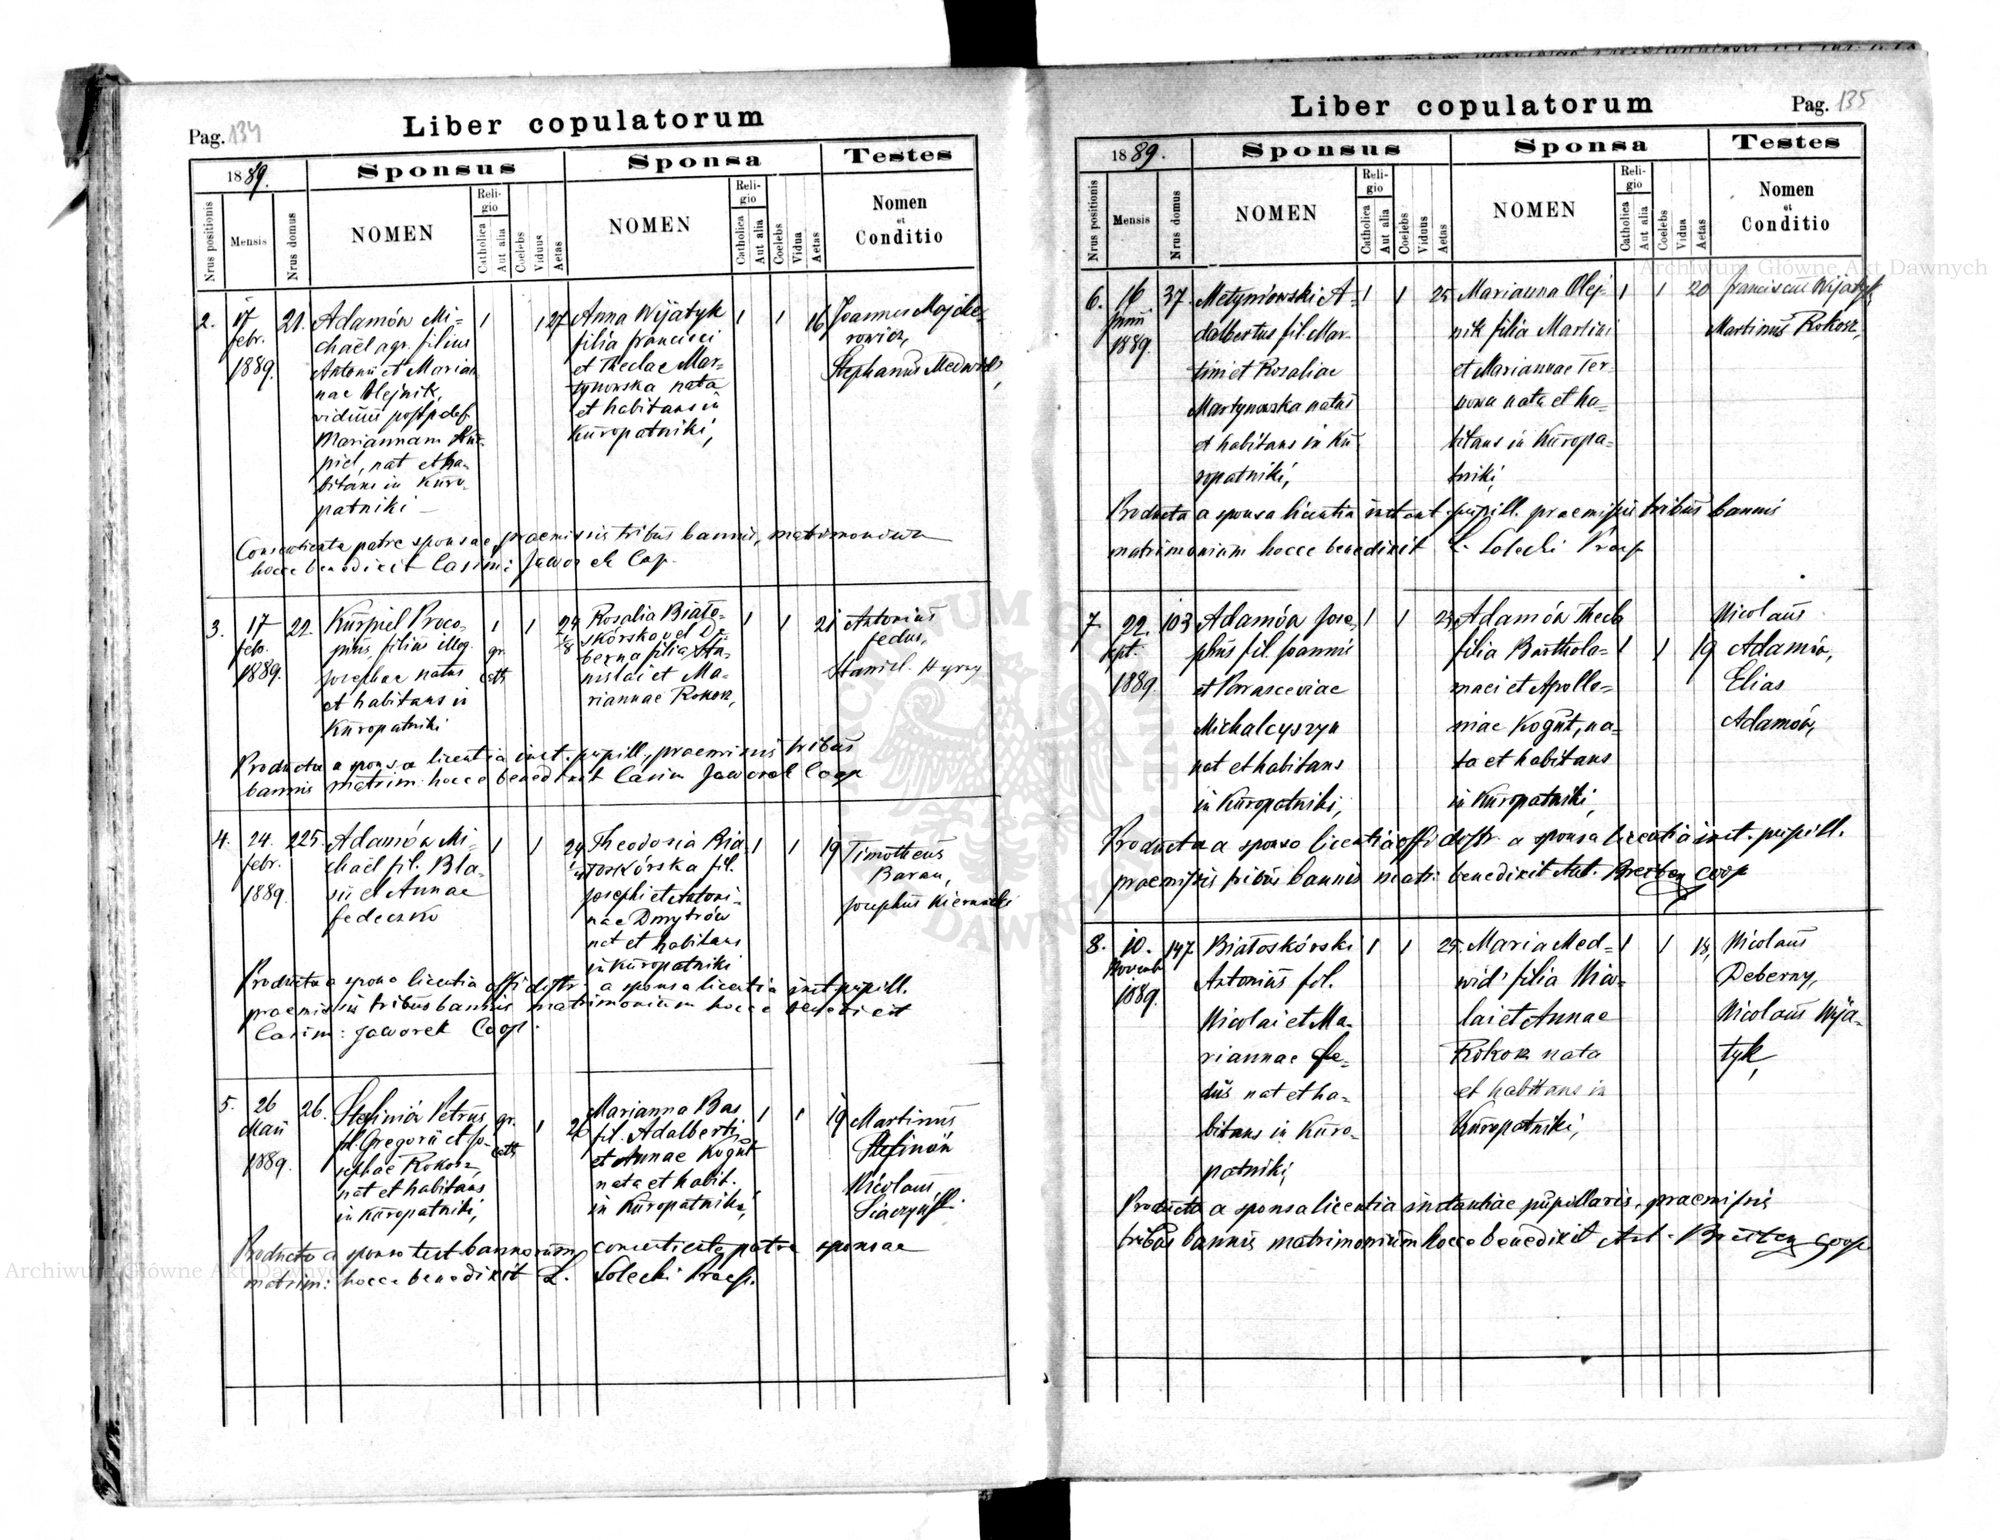 Pag. 134
Liber copulatorum
1889.
Sponsus
Sponsa
Testes
Nrus positionis
Mensis
Nrus domus
NOMEN
Religio
Catholica
Aut alia
Coelebs
Viduus
Aetas
NOMEN
Religio
Catholica
Aut alia
Coelebs
Vidua
Aetas
Nomen
et
Conditio
2. 17 febr. 1889. 21.
Adamów Mi-
chaël agr. filius
Antonii et Marian
nae Olejnik,
viduus post p. def.
Mariannam Kur-
piel, nat et ha-
bitans in Kuro-
patniki
1 1 27
Anna Wijatyk
filia Francisci
et Theclae Mar-
tynowska nata
et habitans in
Kuropatniki,
1 1 16
Joannes Majche-
rowicz,
Stephanus Medwid,
Consentiente patre sponsae, praemissis tribus bannis, matrimonium
hocce benedixit Casimi: Jaworek Cop.
3. 17 feb. 1889. 22.
Kurpiel Proco-
pius, filius illeg.
Josephae natus
et habitans in
Kuropatniki
1 gr. cath. 1 24
Rosalia Biało-
skórska vel De-
berna filia Sta-
nislai et Ma-
riannae Rokosz,
1 1 21
Antonius
Fedus,
Staniel. Hyrny
Producta a sponsa licentia inst. pupill., praemissis tribus
bannis matrim: hocce benedixit Casim Jaworek Coop
4. 24. febr. 1889. 225.
Adamów Mi-
chaël fil. Bla-
sii et Annae
Fedeczko
1 1 24
Theodosia Bia-
łoskórska fil.
Josephi et Antoni-
nae Dmytrów
nat et habitans
in Kuropatniki
1 1 19
Timotheus
Baran,
Josephus Kiernicki
Producta a sponso licentia offi distr. a sponsa licentia inst pupill.
praemissis tribus bannis matrimonium hocce benedixit
Casim: Jaworek Coop.
5. 26 Maii 1889. 26.
Stefiniów Petrus
fil. Gregorii et Jo-
sephae Rokosz,
nat et habitans
in Kuropatniki,
gr. cath. 1 26
Marianna Bas
fil. Adalberti
et Annae Kogut
nata et habit.
in Kuropatniki,
1 1 19
Martinus
Stefinów
Nicolaus
Producto a sponso test. bannorum, consentiente patre sponsae
matrim: hocce benedixit L. Solecki Praep.
Pag. 135
Liber copulatorum
1889.
Sponsus
Sponsa
Testes
Nrus positionis
Mensis
Nrus domus
NOMEN
Religio
Catholica
Aut alia
Coelebs
Viduus
Aetas
NOMEN
Religio
Catholica
Aut alia
Coelebs
Vidua
Aetas
Nomen
et
Conditio
6. 16 Junii 1889. 37.
Metyniowski A-
dalbertus fil. Mar-
tini et Rosaliae
Martynowska natus
et habitans in Ku-
ropatniki,
1 1 25
Marianna Olej-
nik filia Martini
et Mariannae Ter-
nowa nata et ha-
bitans in Kuropa-
tniki,
1 1 20
Franciscus Wijatyk
Martinus Rokosz,
Producta a sponsa licentia instant. pupill. praemissis tribus bannis
matrimonium hocce benedixit L. Solecki Praep
7. 22. sept. 1889. 103
Adamów Jose-
phus fil. Joannis
et Parasceviae
Michalcyszyn
nat et habitans
in Kuropatniki,
1 1 23
Adamów Thecla
filia Bartholo-
maei et Apollo-
niae Kogut, na-
ta et habitans
in Kuropatniki,
1 1 19
Nicolaus
Adamów,
Elias
Adamów,
Producta a sponso licentia offi distr. a sponsa licentia inst. pupill.
praemissis tribus bannis matri: benedixit Ant. Breitbeg coop
8. 10. Novemb 1889. 147
Białoskórski
Antonius fil.
Nicolai et Ma-
riannae Fe-
dus nat et ha-
bitans in Kuro-
patniki,
1 1 25.
Maria Med-
wid' filia Nico-
lai et Annae
Rokosz nata
et habitans in
Kuropatniki,
1 1 18,
Nicolaus
Deberny,
Nicolaus Wija-
tyk,
Producta a sponsa licentia instantiae pupillaris, praemissis
tribus bannis matrimonium hocce benedixit Ant. Breitbeg coop
Archiwum Główne Akt Dawnych
Archiwum Główne Akt Dawnych